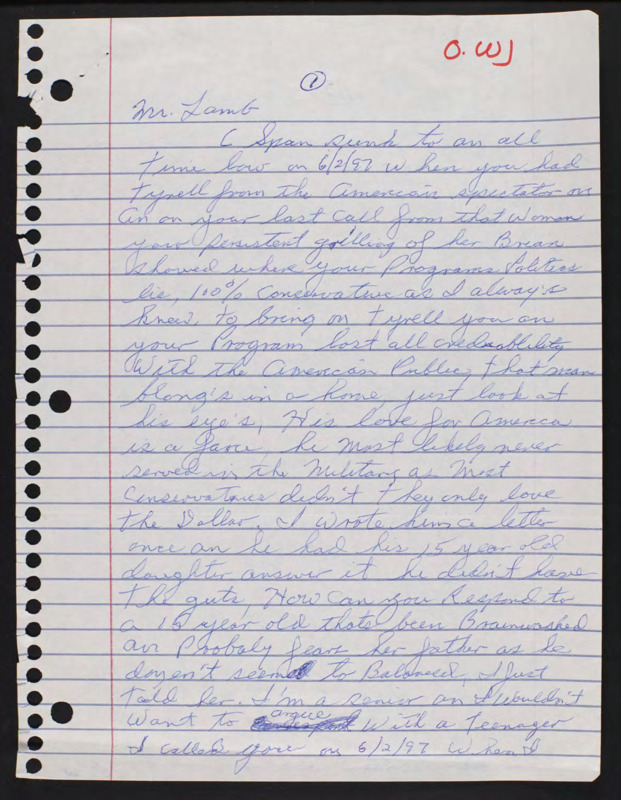 O. WJ
1
Mr. Lamb
C Span sunk to an all
time low on 6/2/97 when you had
tyrell from the American spectator on
An on your last call from that woman
your persistent grilling of her Brian
Showed where your Programs Politics
lie, 100% Conservative as I always
knew, to bring on tyrell you an
your Program lost all
With the American Public, that man
blong's in a home, just look at
his eye's, His love for America
is a farce, he most likely never
served in the Military as most
Conservatives didn't they only love
the Dollar. I wrote him a letter
once an he had his 15 year old
daughter answer it he didn't have
the guts, How can you Respond to
a 15 year old thats been Brainwashed
an Probaly fears her father as he
doyen't seem to Balanced, I Just
told her. I'm a senior an I wouldn't
Want to argue With a Teenager
I called you on 6/2/97 When I